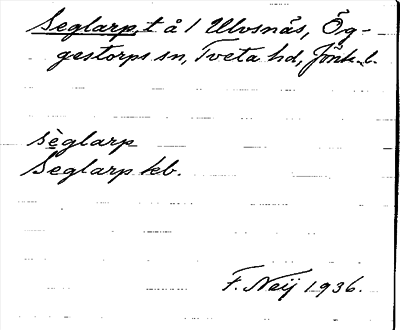 Seglarp, t å 1 Ulvsnäs, Ög-
gestorps sn, Tveta hd, Jönk. l.
sèglarp
Seglarp kb.
F. Neij 1936.